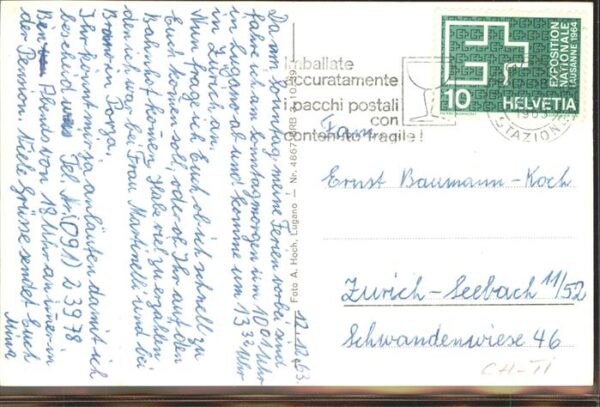 12.10.63
Da am Sonntag meine Ferien vorbei sind
fahre ich am Montagmorgen um 10 01 Uhr
in Lugano ab und komme um 13 32 Uhr
in Zürich an.
Nun frage ich Euch ob ich schnell zu
Euch kommen soll, oder ob Ihr auf den
Bahnhof kommt. Habe viel zu erzählen
denn ich war bei Frau Martinelli und bei
in Porza
Ihr könnt mir ja anläuten damit ich
bescheid weiss Tel. Nr. (091) 2 39 78.
Abends von 18 Uhr an immer in
der Pension. Viele Grüsse sendet Euch
Mina
Foto A. Hoch, Lugano – Nr. 4867
imballate
accuratamente
i pacchi postali
con
contenuto fragile!
STAZIONE
10
HELVETIA
EXPOSITION
NATIONALE
LAUSANNE 1964
Fam.
Ernst Baumann-Koch
Zürich-Seebach 11/52
Schwandenwiese 46
CH-TI